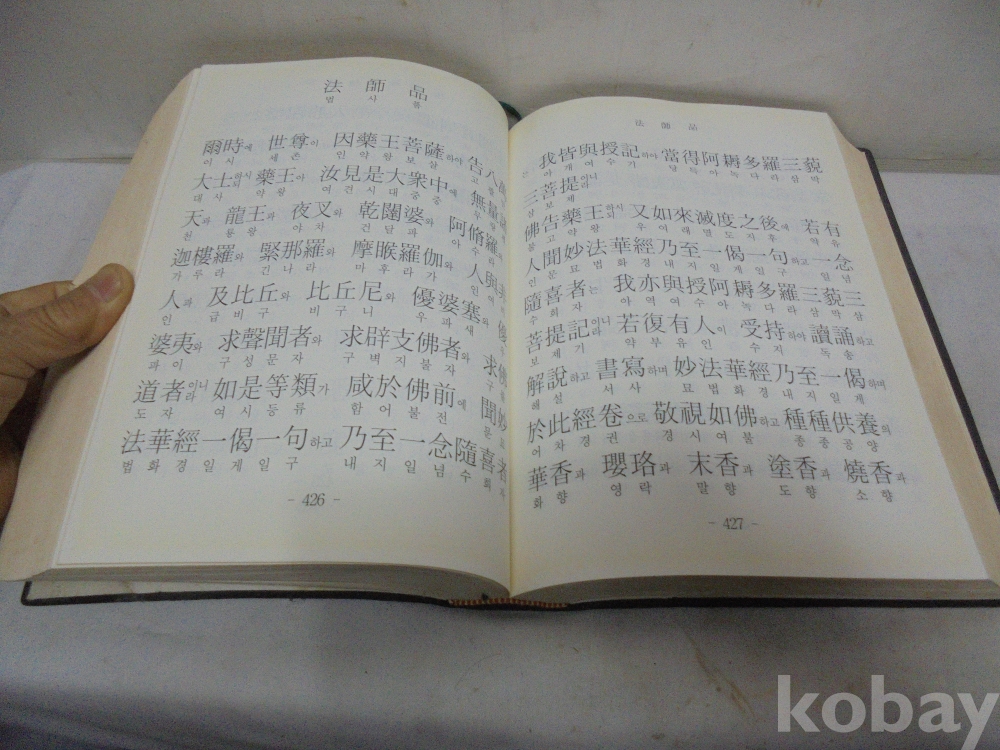 法師品
법사품
爾時에 世尊이 因藥王菩薩하야 告八
이시 세존 인약왕보살 고팔
大士하되 藥王아 汝見是大衆中에 無量
대사 약왕 여견시대중중 무량
天과 龍王과 夜叉와 乾闥婆와 阿脩羅
천 룡왕 야차 건달파 아수라
迦樓羅와 緊那羅와 摩睺羅伽와 人與
가루라 긴나라 마후라가 인여
人과 及比丘와 比丘尼와 優婆塞와
인 급비구 비구니 우파새
婆夷와 求聲聞者와 求辟支佛者와 求佛
파이 구성문자 구벽지불자 구
道者이니라 如是等類가 咸於佛前에 聞妙
도자 여시등류 함어불전 문
法華經一偈一句하고 乃至一念隨喜者
법화경일게일구 내지일념수희자
- 426 -
法師品
는 我皆與授記하야 當得阿耨多羅三藐
아개여수기 당득아녹다라삼막
三菩提이니라
삼보제
佛告藥王하시되 又如來滅度之後에 若有
불고약왕 우여래멸도지후 약유
人聞妙法華經乃至一偈一句하고 一念
인문묘법화경내지일게일구 일념
隨喜者는 我亦與授阿耨多羅三藐三
수희자 아역여수아녹다라삼막삼
菩提記이니라 若復有人이 受持하야 讀誦
보제기 약부유인 수지 독송
解說하고 書寫하며 妙法華經乃至一偈하며
해설 서사 묘법화경내지일게
於此經卷으로 敬視如佛하고 種種供養의
어차경권 경시여불 종종공양
華香과 瓔珞과 末香과 塗香과 燒香과
화향 영락 말향 도향 소향
- 427 -
kobay